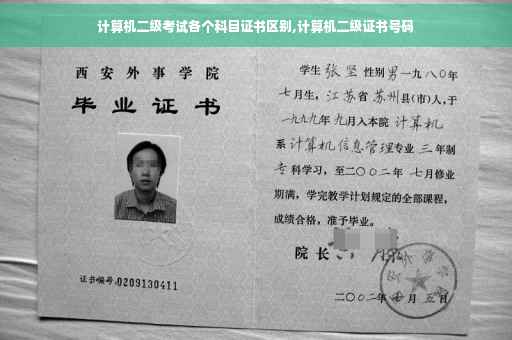 计算机二级考试各个科目证书区别,计算机二级证书号码
西安外事学院
毕业证书
证书编号:0209130411
学生 张坚 性别 男 一九八〇年
七月生，江苏省 苏州县(市)人,于
一九九九年 九月入本院 计算机
系 计算机信息管理专业 三 年制
专 科学习，至二〇〇二年 七月修业
期满，学完教学计划规定的全部课程,
成绩合格，准予毕业。
院长
二〇〇二年 月 五日